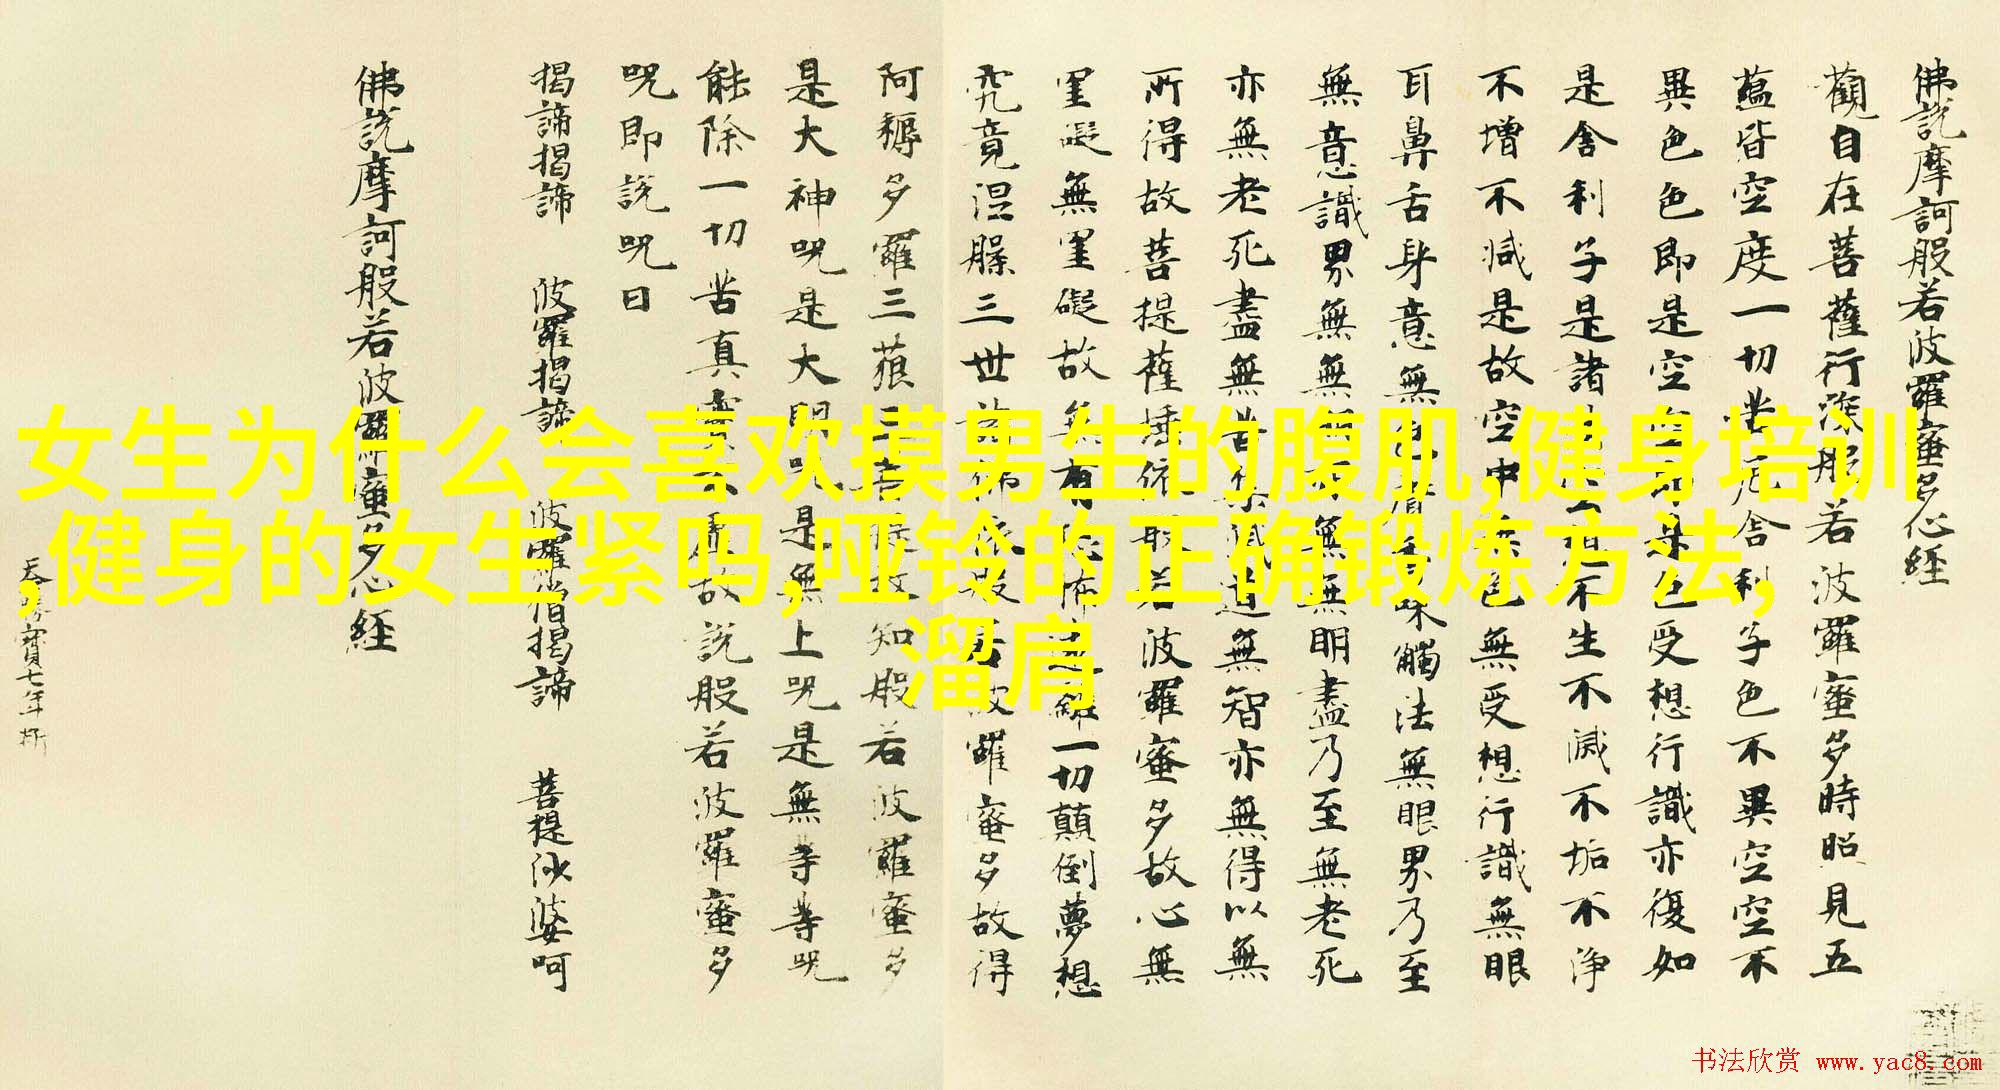 佛說摩訶般若波羅蜜多心經
觀自在菩薩行深般若波羅蜜多時照見五
蘊皆空度一切苦厄舍利子色不異空空不
異色色即是空空即是色受想行識亦復如
是舍利子是諸法空相不生不滅不垢不淨
不增不減是故空中無色無受想行識無眼
耳鼻舌身意無色聲香味觸法無眼界乃至
無意識界無無明亦無無明盡乃至無老死
亦無老死盡無苦集滅道無智亦無得以無
所得故菩提薩埵依般若波羅蜜多故心無
罣礙無罣礙故無有恐怖遠離一切顛倒夢想
究竟涅槃三世諸佛依般若波羅蜜多故得
阿耨多羅三藐三菩提故知般若波羅蜜多
是大神呪是大明呪是無上呪是無等等呪
能除一切苦真實不虛故說般若波羅蜜多
呪即說呪曰
揭諦揭諦 波羅揭諦 波羅僧揭諦 菩提沙婆呵
佛說摩訶般若波羅蜜多心經
天寶七年
女生为什么会喜欢摸男生的腹肌,健身培训
,健身的女生紧吗,哑铃的正确锻炼方法,
溜肩
书法欣赏 www.yac8.com